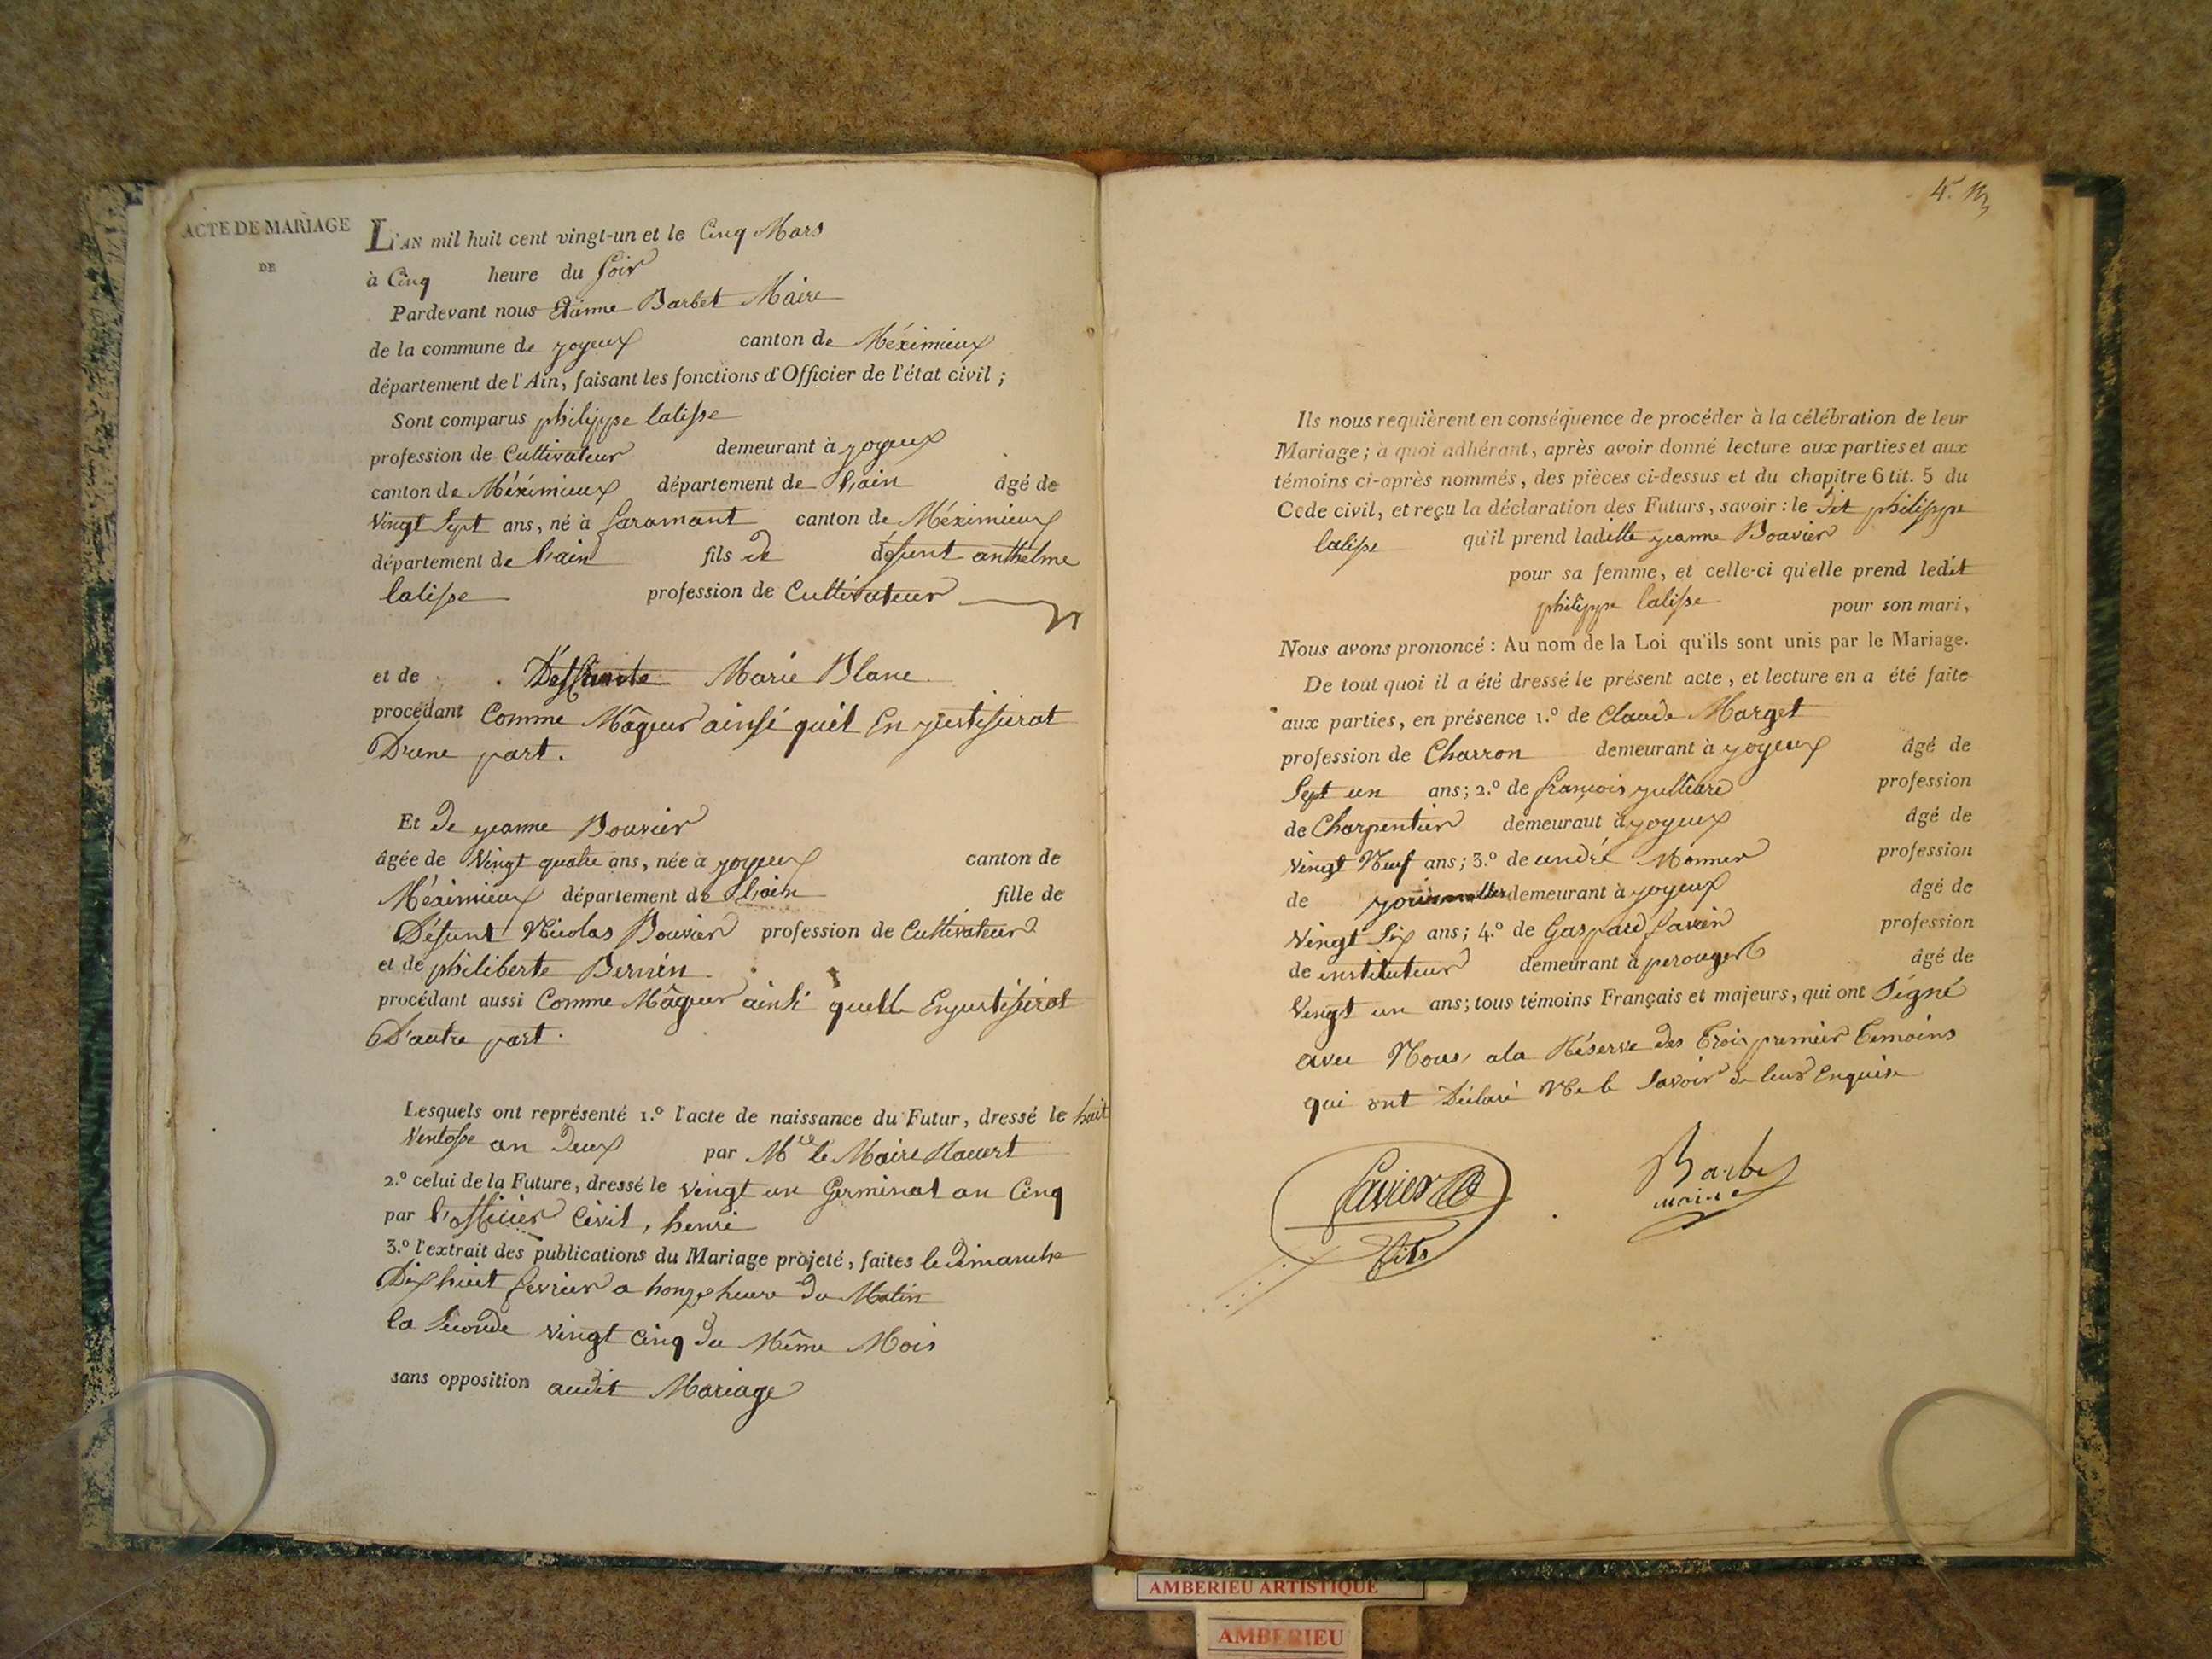 ACTE DE MARIAGE
DE
L'AN mil huit cent vingt-un et le Cinq Mars
à Cinq heure du Soir
Pardevant nous Etienne Barbet Maire
de la commune de joyeux canton de Méximieux
département de l'Ain, faisant les fonctions d'Officier de l'état civil ;
Sont comparus philippe lalisse
profession de Cultivateur demeurant à joyeux
canton de Méximieux département de l'ain âgé de
Vingt Sept ans, né à faramant canton de Méximieux
département de l'ain fils de défunt anthelme
lalisse profession de Cultivateur
et de Marie Blanc
procédant Comme Mâgeur ainsi quil En justifirat
D'une part.
Et De jeanne Bouvier
âgée de Vingt quatre ans, née à joyeux canton de
Méximieux département de l'ain fille de
Défunt Nicolas Bouvier profession de Cultivateur
et de philiberte Bernin
procédant aussi Comme Mâgeur ainsi quelle Enjustifirat
D'autre part.
Lesquels ont représenté 1.º l'acte de naissance du Futur, dressé le huit
Ventosse an Deux par le Maire
2.º celui de la Future, dressé le vingt un Germinal an Cinq
par l'officier Civil, henri
3.º l'extrait des publications du Mariage projeté, faites le Dimanche
Dix huit fevrier a honze heure Du Matin
la Seconde vingt Cinq Du Même Mois
sans opposition audit Mariage
Ils nous requièrent en conséquence de procéder à la célébration de leur
Mariage ; à quoi adhérant, après avoir donné lecture aux parties et aux
témoins ci-après nommés, des pièces ci-dessus et du chapitre 6 tit. 5 du
Code civil, et reçu la déclaration des Futurs, savoir : le Dit philippe
lalisse qu'il prend laditte jeanne Bouvier
pour sa femme, et celle-ci qu'elle prend ledit
philippe lalisse pour son mari,
Nous avons prononcé : Au nom de la Loi qu'ils sont unis par le Mariage.
De tout quoi il a été dressé le présent acte, et lecture en a été faite
aux parties, en présence 1.º de Claude Marget
profession de Charron demeurant à joyeux âgé de
Sept un ans ; 2.º de françois profession
de Charpentier demeuraut à joyeux âgé de
Vingt Neuf ans ; 3.º de andré Monner profession
de demeurant à joyeux âgé de
Vingt Six ans ; 4.º de Gaspard profession
de instituteur demeurant à perouges âgé de
Vingt un ans ; tous témoins Français et majeurs, qui ont Signé
avec Nous, ala Réserve des Trois premier Temoins
qui ont Déclaré Ne le Savoir de leur Enquise
fils
Barbet
maire
AMBERIEU ARTISTIQUE
AMBERIEU